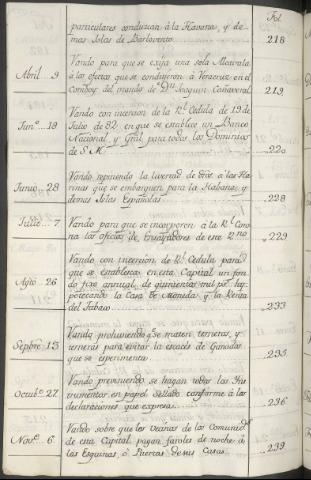 Fol.
particulares conduzcan á la Havana, y de-
mas Islas de Barlovento 218
Abril.. 9 Vando para que se exija una sola Alcavala
á los efectos que se condujeron á Veracruz en el
Comboy del mando de Dn. Joaquin Cañaveral 219
Jun.o.. 18 Vando con insercion de la Rl. Cedula de 19 de
Julio de 82 en que se establece un Banco
Nacional y Gral para todos los Dominios
de S. M. 220
Junio.. 28 Vando repitiendo la livertad de dros á las Ha-
rinas que se embarquen para la Habana, y
demas Islas Españolas 228
Julio.. 7 Vando para que se incorporen á la Rl. Coro-
na los oficios de Ensayadores de este Rno. 229
Agto. 26 Vando con insercion de Rl. Cedula para
que se establesca en esta Capital un fon-
do fixo annual, de quinientos mil ps. hy-
potecando la Casa de Moneda y la Renta
del Tabaco 233
Sepbre. 13 Vando prohiviendo qe. se maten terneras, y
terneros para evitar la escaces de Ganados
que se experimenta 235
Octub.e 27 Vando previniendo se hagan todos los Ins-
trumentos en papel Sellado conforme á las
declaraciones que expresa 236
Nov.e. 6 Vando sobre que los vecinos de las Comunid.s
de esta Capital pagan faroles de noche á
las Esquinas ó Puertas de sus Casas 239